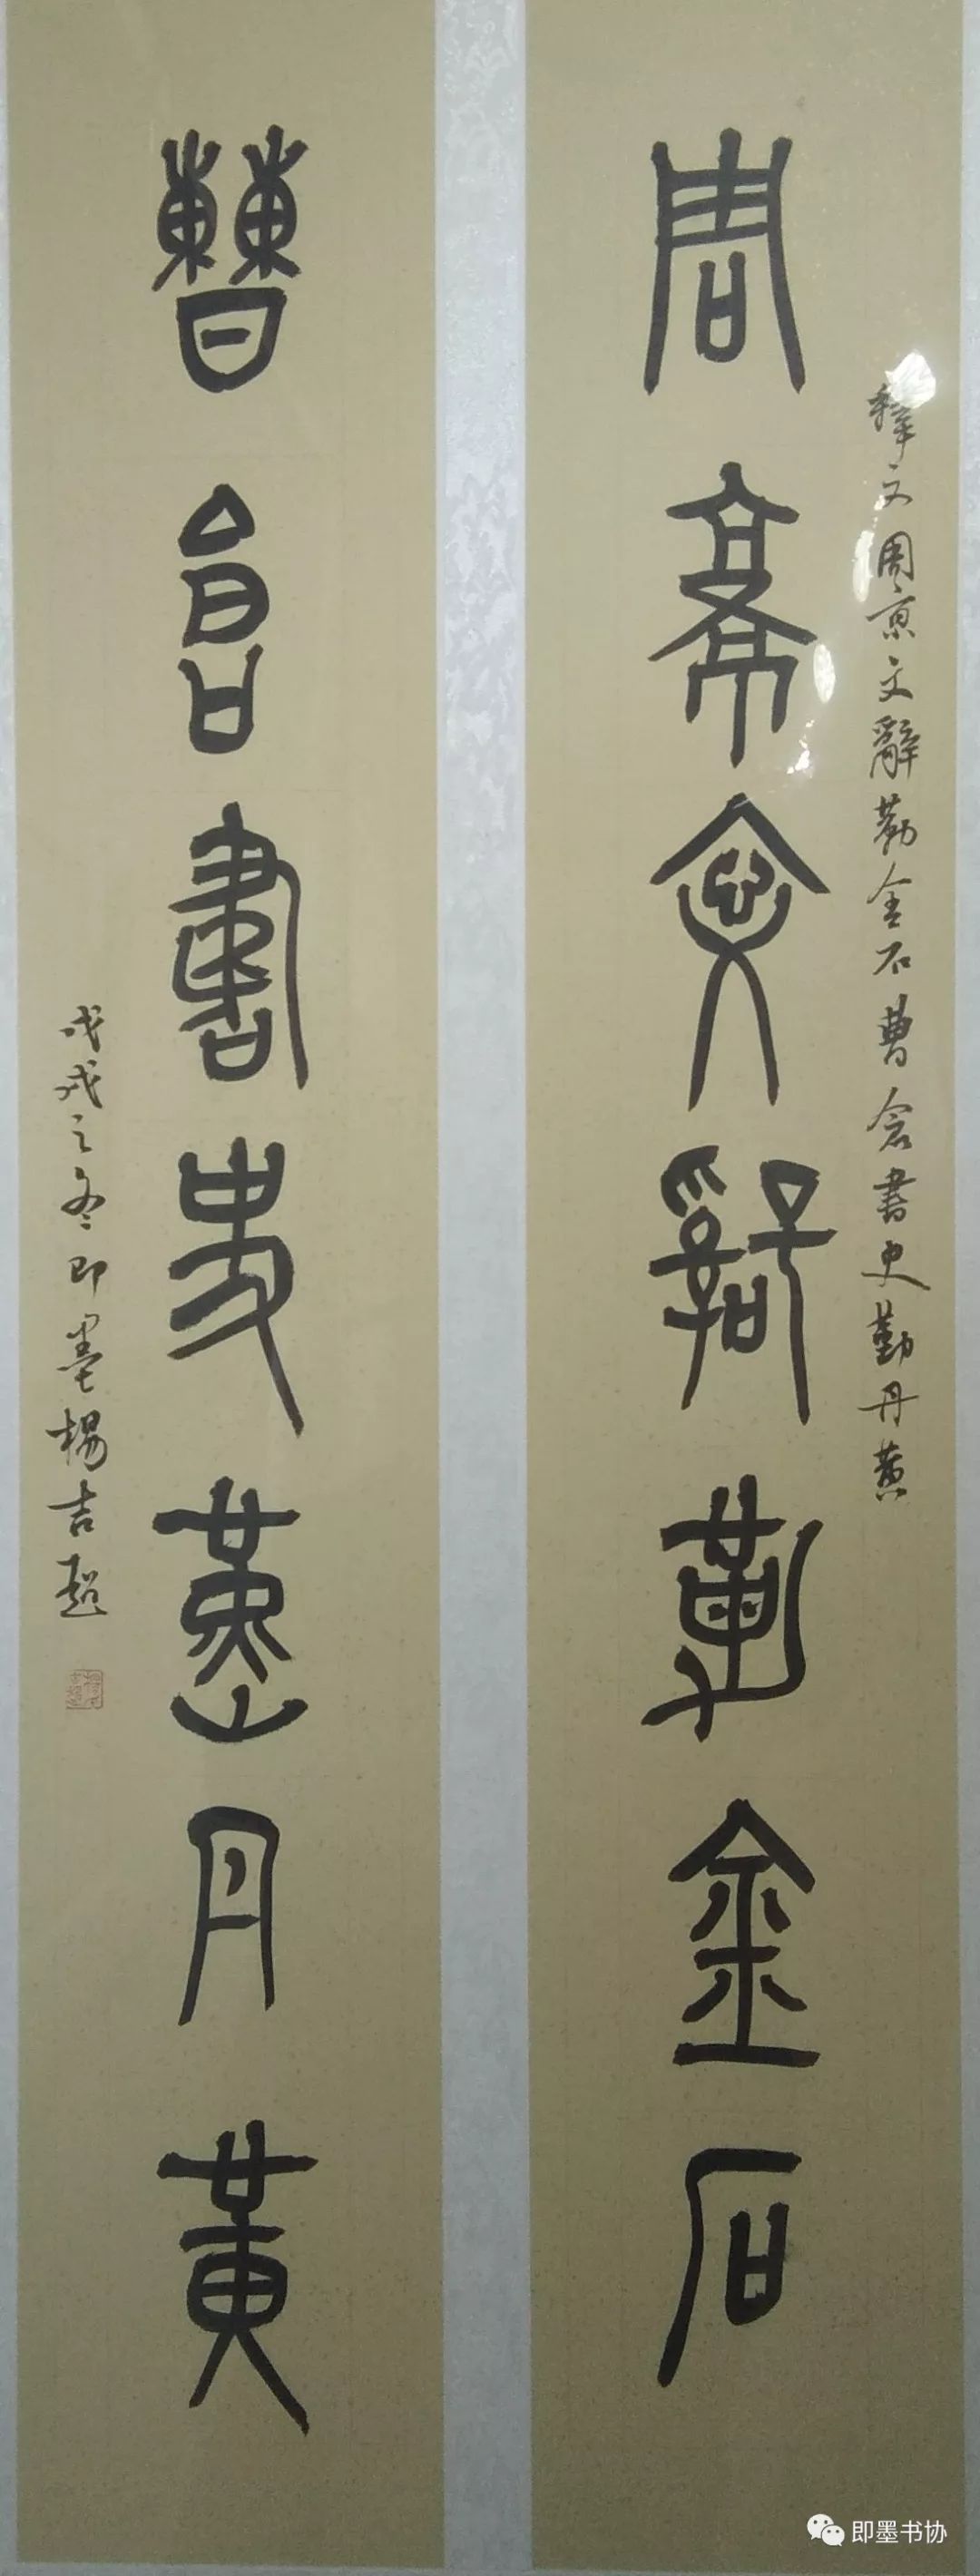 释文周京文辭勒金石曹倉書史勤丹黄
周京文辭勒金石
曹倉書史勤丹黄
戊戌之冬即墨楊吉
即墨书协